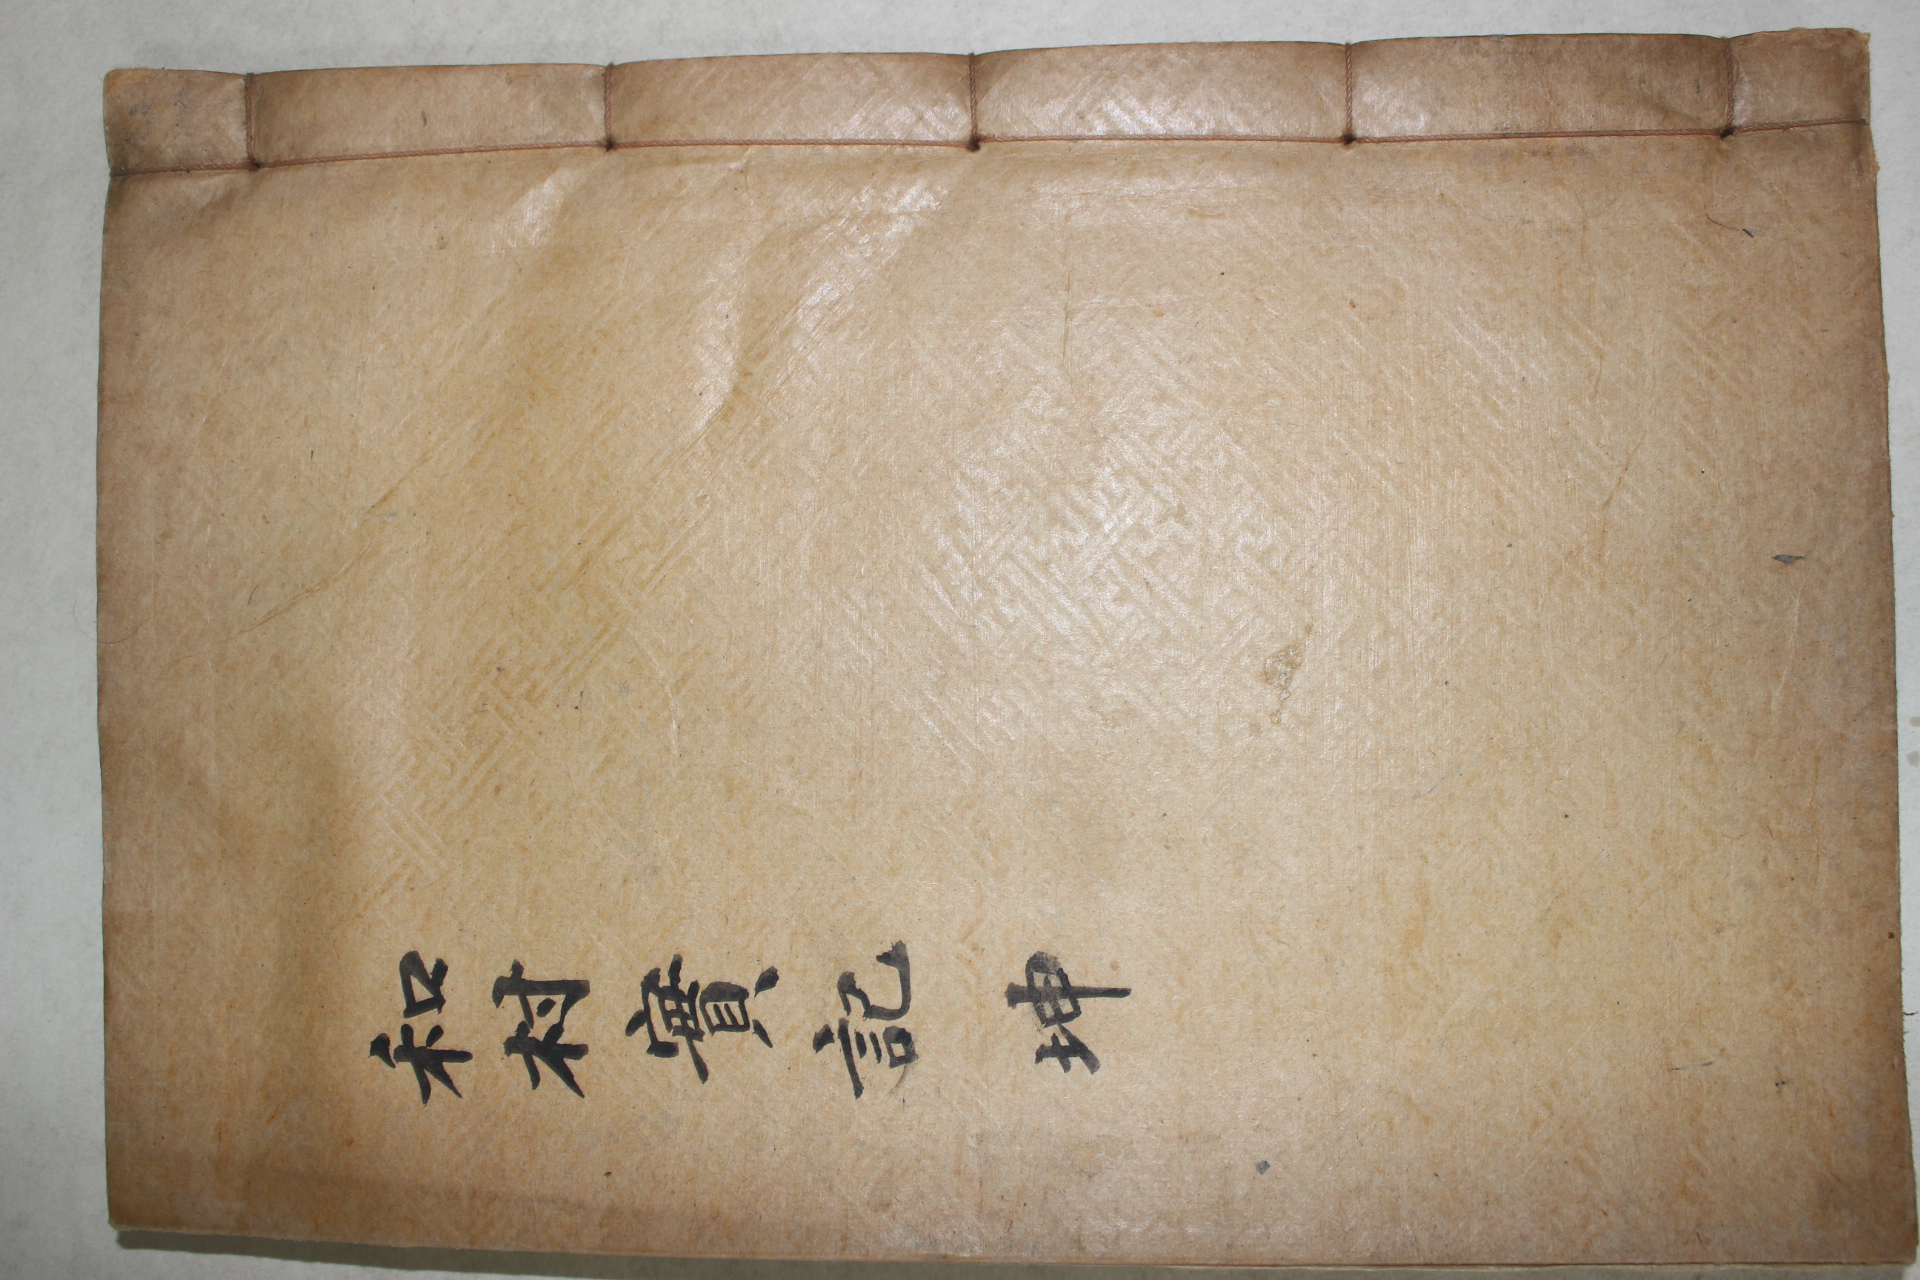 和村實記 坤